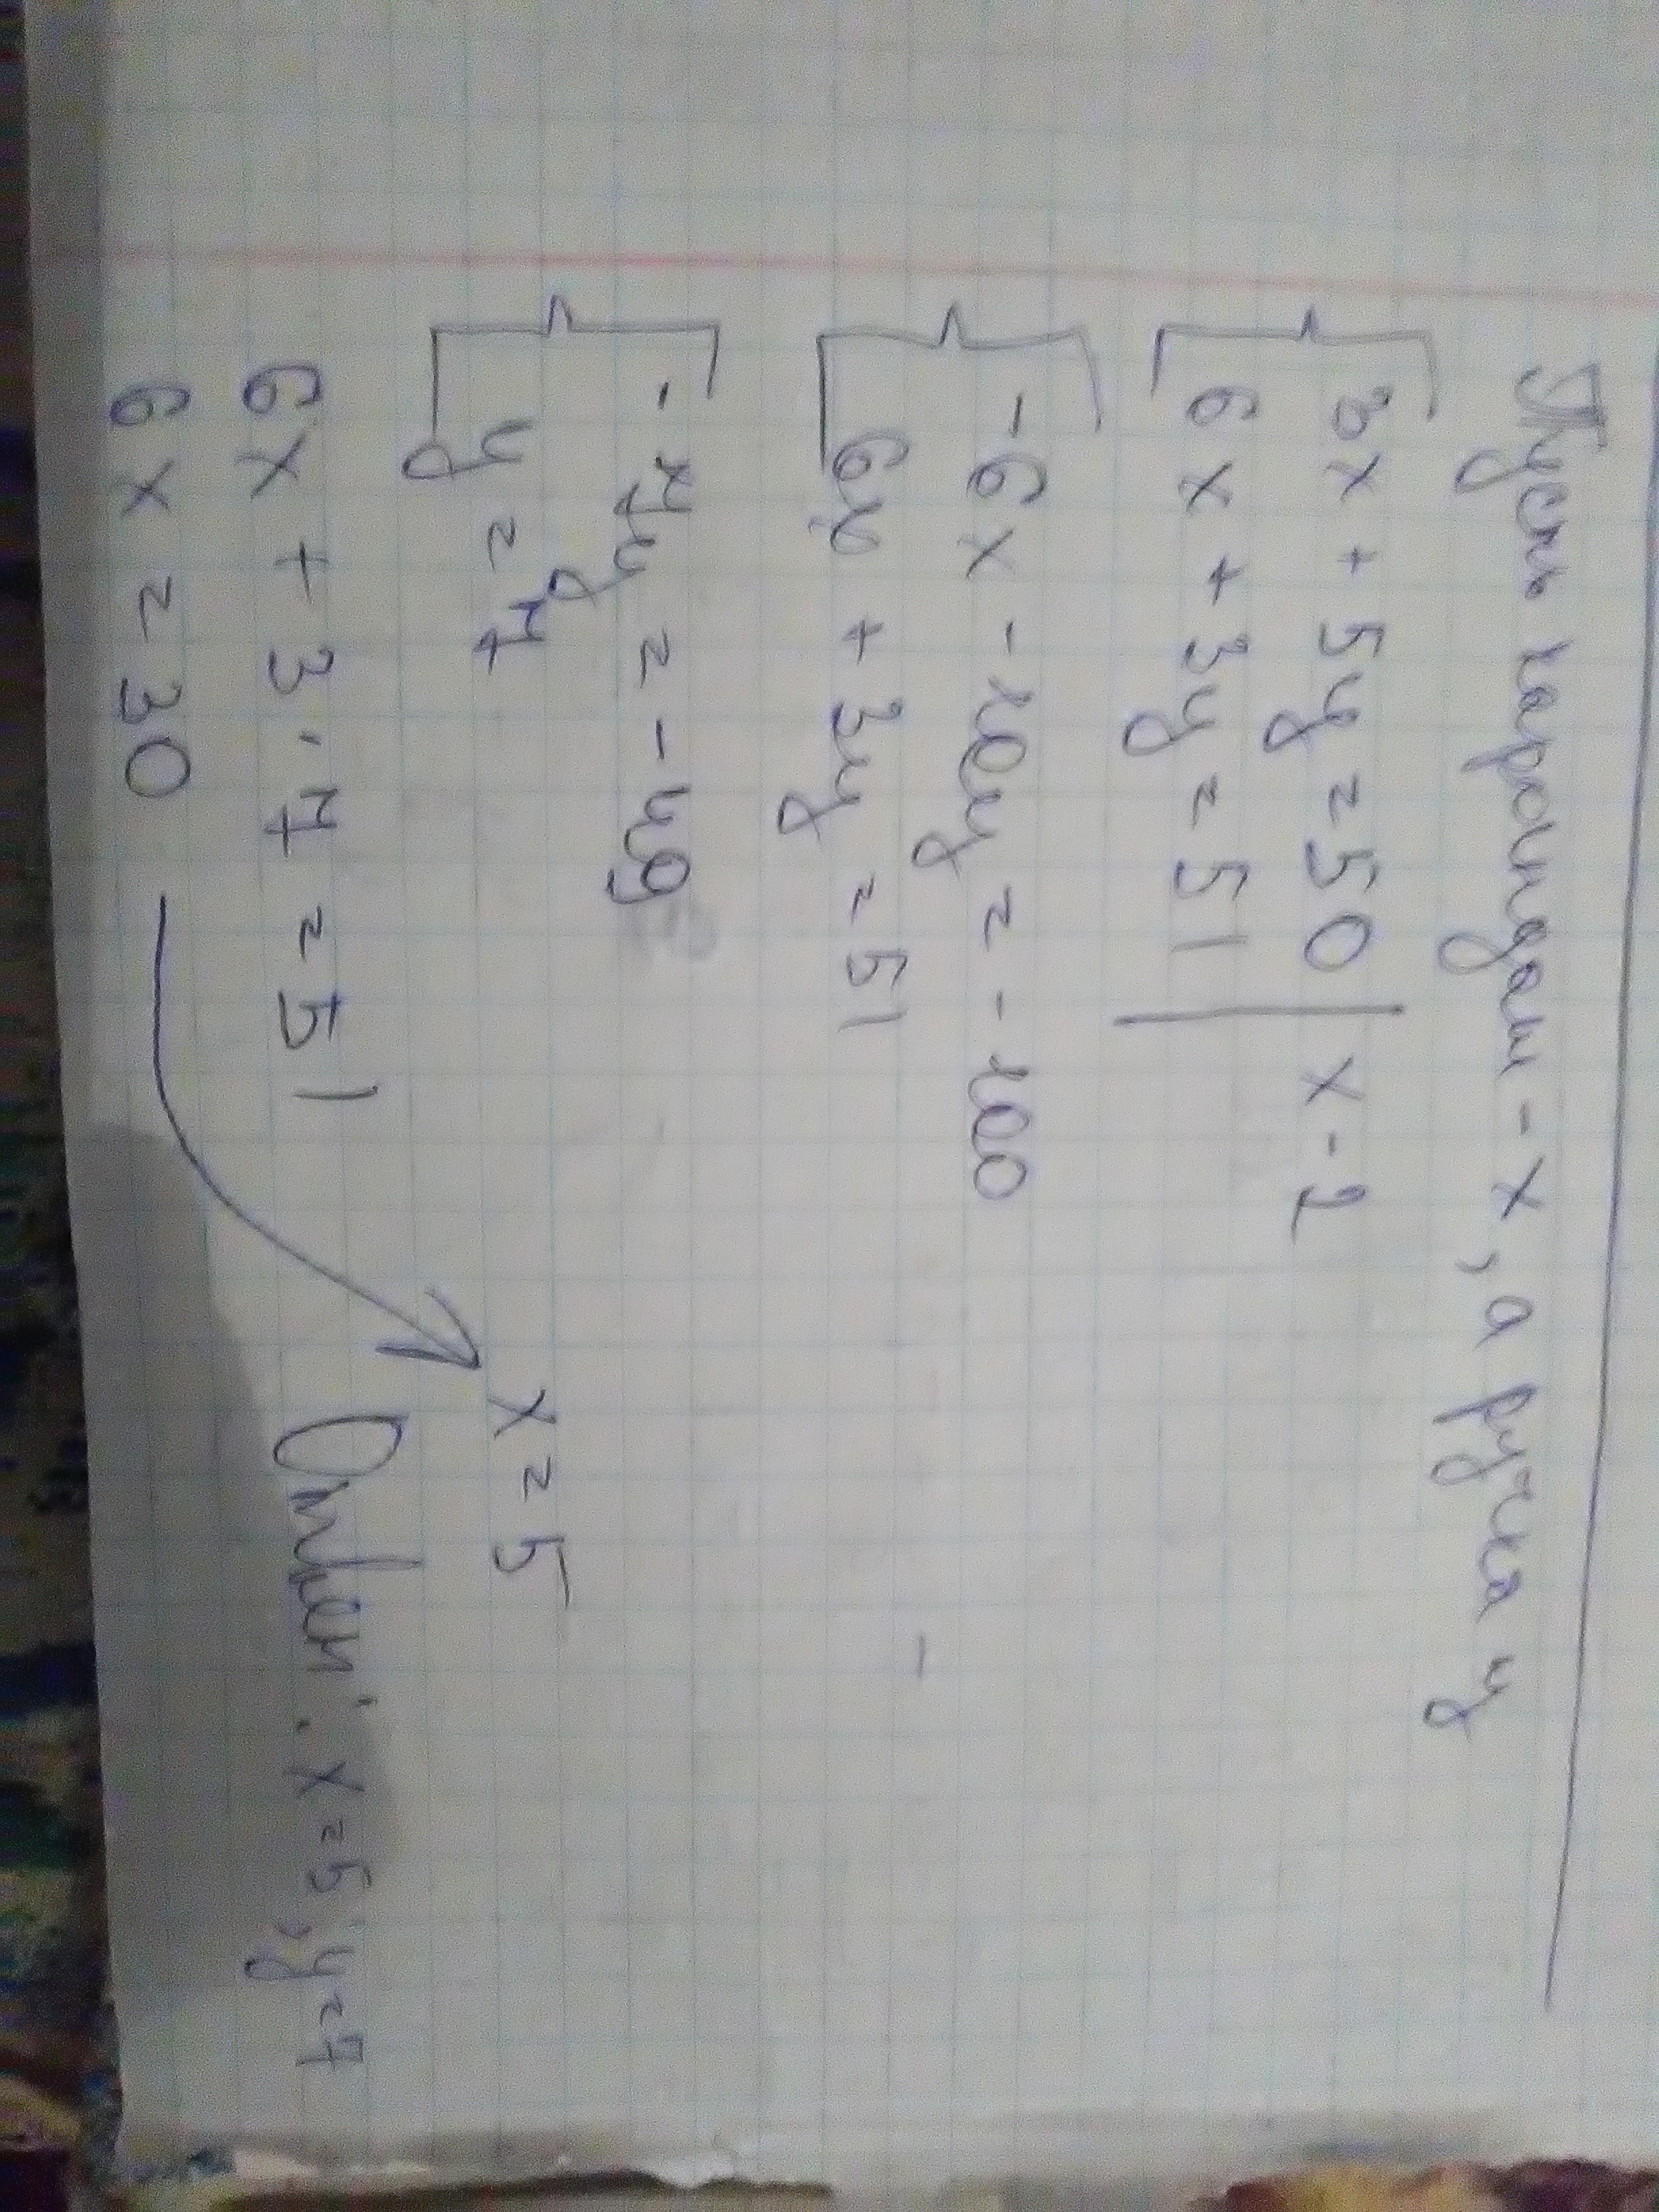 Пусть карандаш - x, а ручка y
3x + 5y = 50 | x - 2
6x + 3y = 51
-6x - 10y = -100
6x + 3y = 51
-7y = -49
y = 7
6x + 3·7 = 51
6x = 30
x = 5
Ответ: x = 5, y = 7